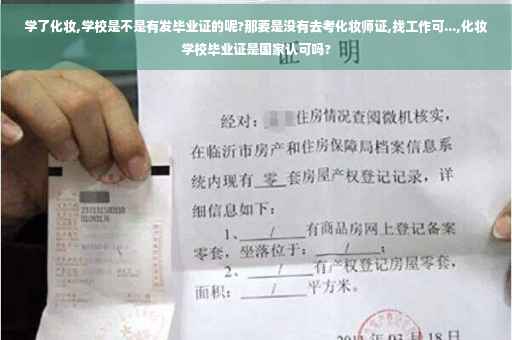 学了化妆,学校是不是有发毕业证的呢?那要是没有去考化妆师证,找工作可...,化妆
学校毕业证是国家认可吗?
证 明
经对: 住房情况查阅微机核实,
在临沂市房产和住房保障局档案信息系
统内现有 零 套房屋产权登记记录,详
细信息如下:
1、 / 有商品房网上登记备案
零套,坐落位于: / ;
2、 / 有产权登记房屋零套,
面积: / 平方米。
03月18日